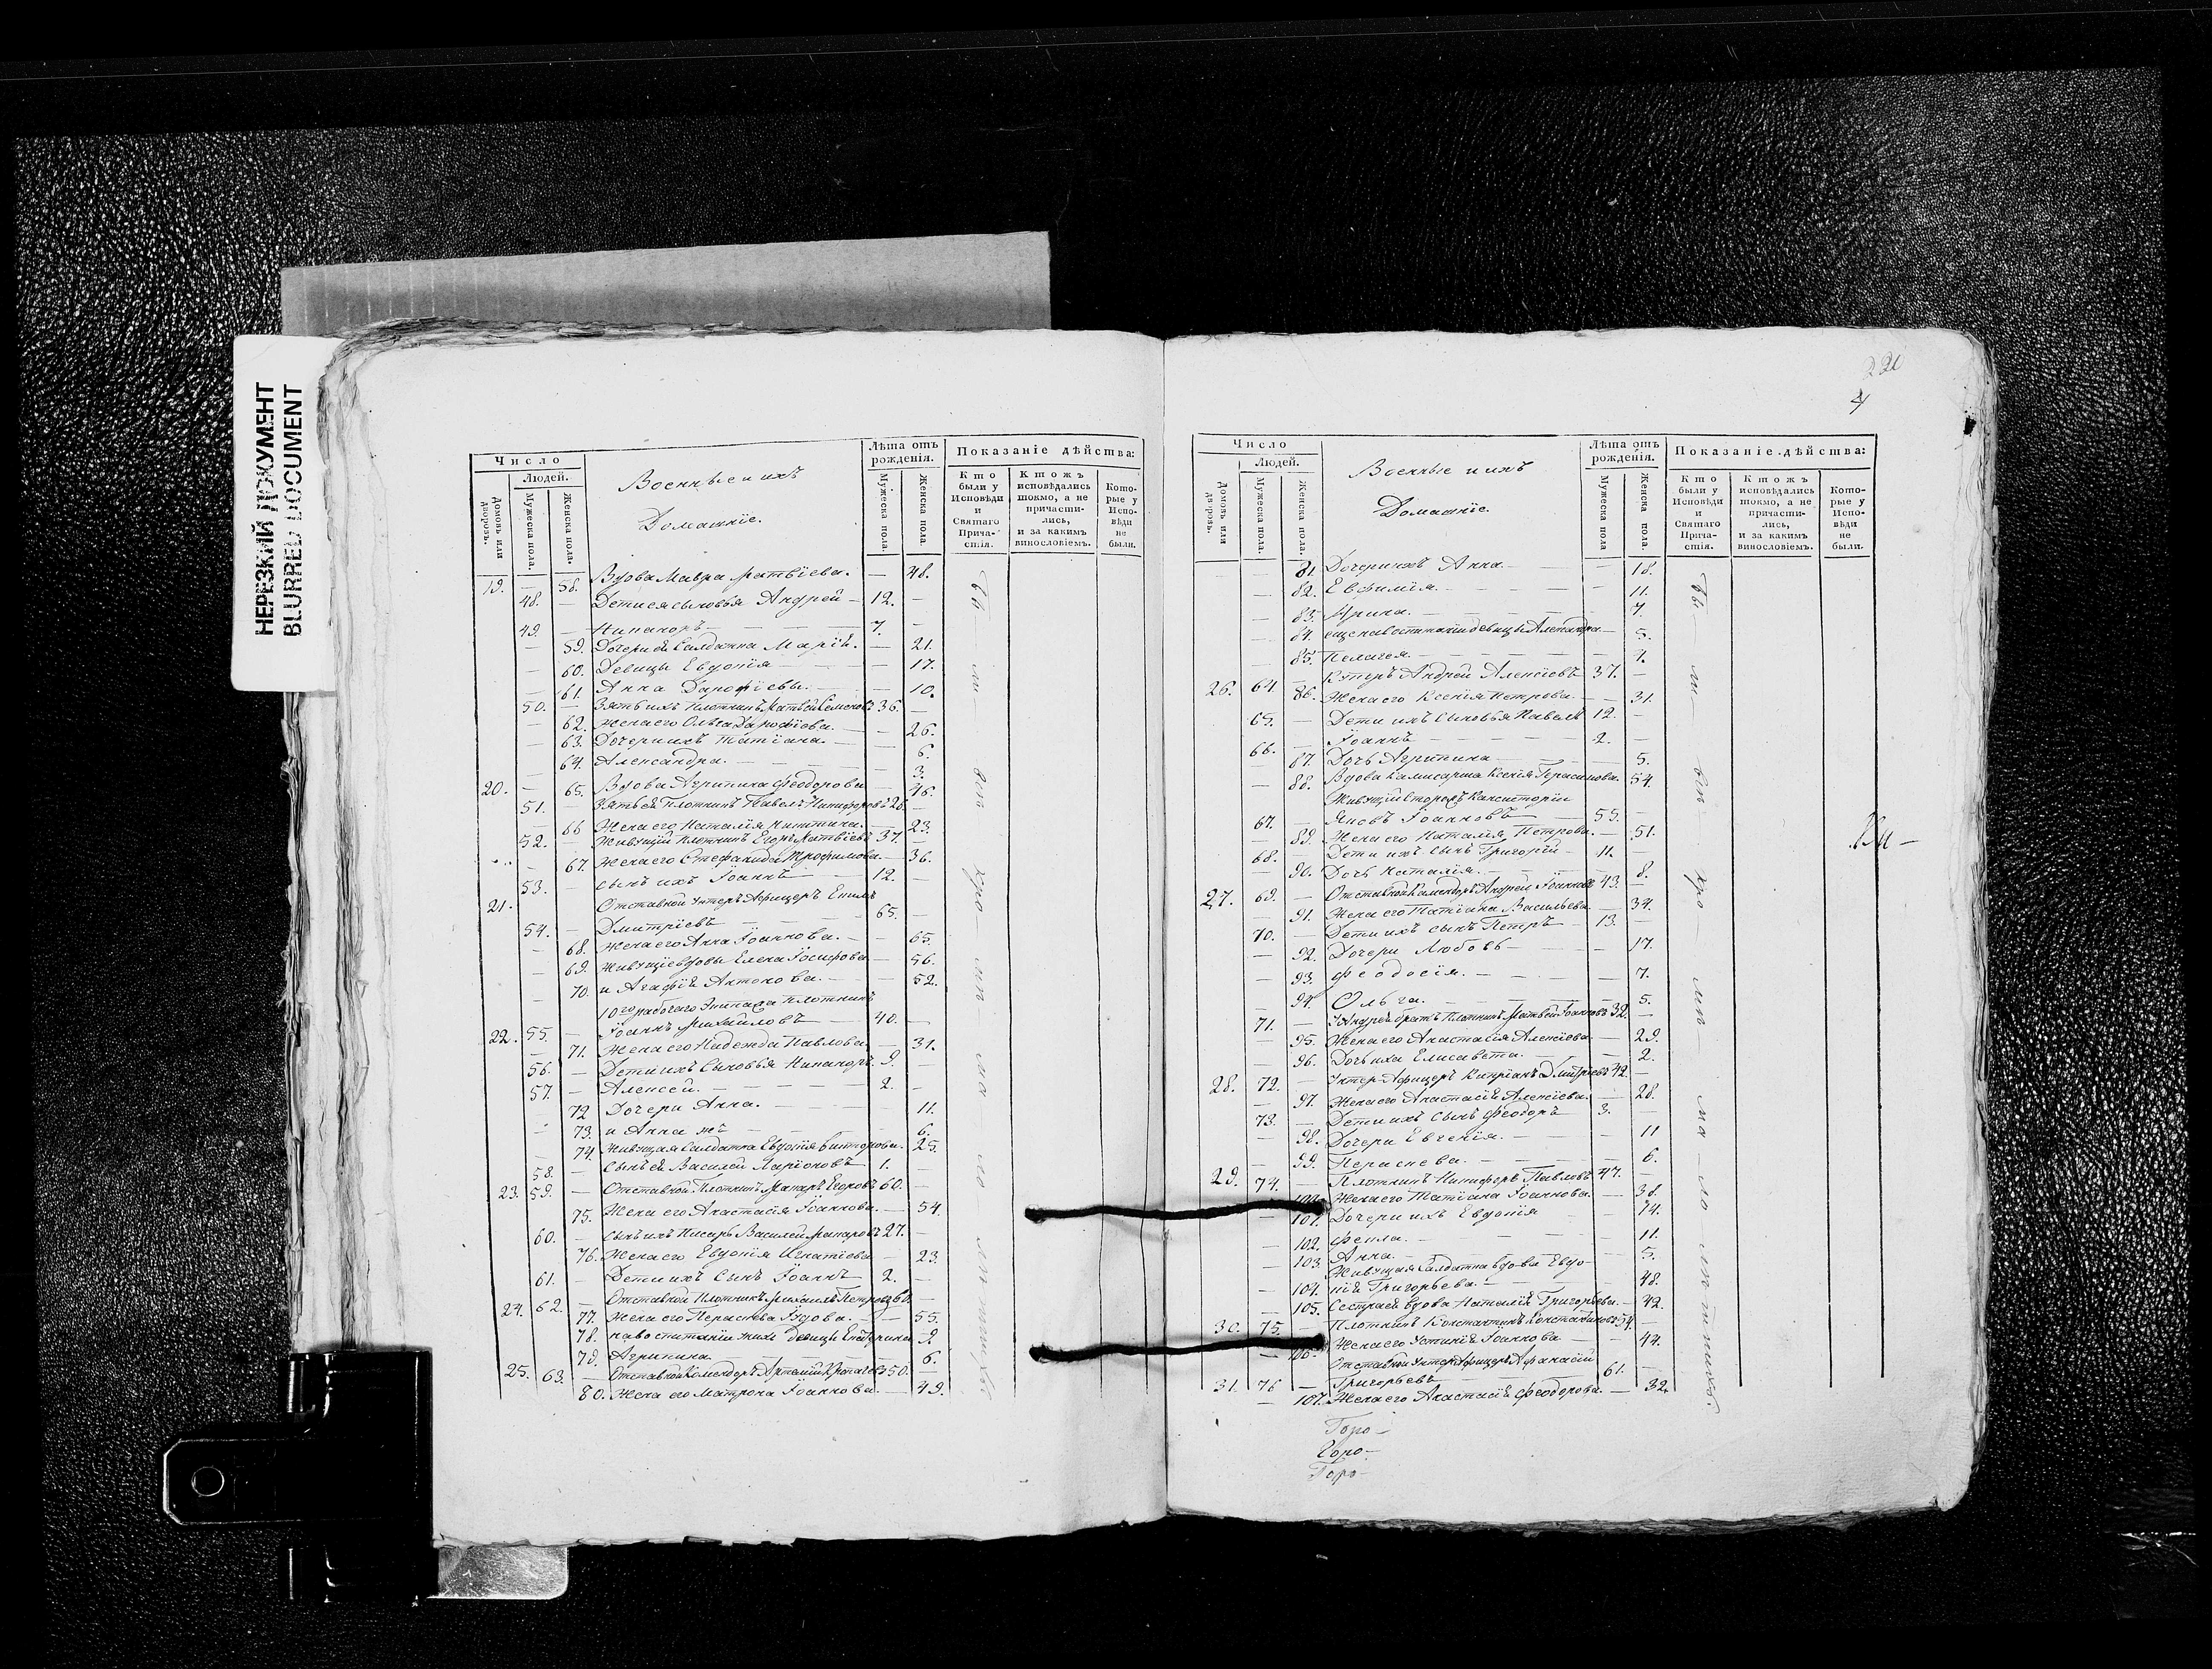 НЕРЕЗКИЙ ДОКУМЕНТ
BLURRED DOCUMENT
Число
Людей.
Домовъ или дворовъ.
Мужеска пола.
Женска пола.
Военные и ихъ
Домашніе.
Лѣта отъ рожденія.
Мужеска пола.
Женска пола.
Показаніе дѣйства:
Кто были у Исповѣди и Святаго Причастія.
Ктожъ исповѣдались токмо, а не причастились, и за какимъ винословіемъ.
Которые у Исповѣди не были.
19. — 58. Вдова Мавра Матвіева. — 48.
48. — Дети ея сыновья Андрей — 12. —
49. — Никаноръ — 7. —
— 59. Дочери ея Салдатка Марія. — 21.
— 60. Девицы Евдокія — 17.
— 61. Анна Дорофіевы. — 10.
50. — Зять ихъ Плотникъ Матвей Семеновъ 36. —
— 62. Жена его Ольга Дорофіева. — 26.
— 63. Дочери ихъ Татіана. — 6.
— 64. Александра. — 3.
20. — 65. Вдова Агрипина Феодорова 46.
51. — Зять ея Плотникъ Павелъ Никифоровъ 26. —
— 66 Жена его Наталія Никитина. — 23.
52. — Живущій Плотникъ Егоръ Матвіевъ 37. —
— 67. Жена его Стефанида Трофимова — 36.
53. — Сынъ ихъ Іоаннъ 12. —
21. Отставной Унтеръ Афицеръ
54. — Дмитріевъ 65. —
— 68. Жена его Анна Іоаннова. — 65.
— 69. Живущіе вдовы Елена Іосифова — 56.
— 70. и Агафія Антонова. — 52.
10го рабочаго Экипажа Плотникъ
22. 55. — Іоаннъ Михайловъ 40. —
— 71. Жена его Надежда Павлова. — 31.
56. — Дети ихъ Сыновья Никаноръ. 9. —
57. — Алексей. — 2. —
— 72 Дочери Анна. — 11.
— 73. и Анна жъ — 6.
— 74. Живущая Салдатка Евдокія Викторова. 25.
58. — Сынъ ея Василей Ларіоновъ 1. —
23. 59. — Отставной Плотникъ Макаръ Егоровъ 60. —
75. Жена его Анастасія Іоаннова. — 54.
60. — Сынъ ихъ Писарь Василей Макаровъ 27. —
76. Жена его Евдокія Игнатіева — 23.
61. — Дети ихъ Сынъ Іоаннъ 2. —
24. 62. — Отставной Плотникъ Михаилъ Петровъ 60. —
77. Жена его Параскева — 55.
78. на воспитаніи девицы Екатерина 9.
79. Агрипина — 6.
25. 63. — Отставной Комендоръ Артемій 50. —
80. Жена его Матрона Іоаннова. — 49.
4
Число
Людей.
Домовъ или дворовъ.
Мужеска пола.
Женска пола.
Военные и ихъ
Домашніе.
Лѣта отъ рожденія.
Мужеска пола
Женска пола.
Показаніе дѣйства:
Кто были у Исповѣди и Святаго Причастія.
Ктожъ исповѣдались токмо, а не причастились, и за какимъ винословіемъ.
Которые у Исповѣди не были.
— 81. Дочери ихъ Анна — 18.
— 82. Евфимія. — 11.
— 83. Ирина. — 7.
— 84. еще на воспитаніи девицы Александра — 5.
— 85. Пелагея. — 9.
26. 64. — Андрей Алексіевъ 37. —
86. Жена его Ксенія Петрова — 31.
65. — Дети ихъ сыновья Павелъ 12. —
66. — Іоаннъ — 2. —
— 87. Дочь Агрипина — 5.
— 88. Вдова Камисарша Ксенія Герасимова. 54.
Живущій Канситоріи
67. — Яковъ Іоанновъ — 55. —
— 89. Жена его Наталія Петрова. — 51.
68. — Дети ихъ сынъ Григорій — 11. —
— 90. Дочь Наталія. — 8.
27. 69. — Отставной Камендоръ Андрей Іоанновъ 43. —
— 91. Жена его Татіана Васильева. — 34.
70. — Дети ихъ сынъ Петръ — 13. —
— 92. Дочери Любовь — 17.
— 93. Феодосія. — 7.
— 94. Ольга. — 5.
71. — У Андрея братъ Плотникъ Матвей Іоанновъ 32. —
— 95. Жена его Анастасія Алексіева. — 29.
— 96. Дочь ихъ Елисавета. — 2.
28. 72. — Унтер-Афицеръ Кипріанъ Дмитріевъ 42. —
— 97. Жена его Анастасія Алексіева. — 28.
73. — Дети ихъ Сынъ Феодоръ 3. —
— 98. Дочери Евгенія. — 11
— 99. Параскева. — 6.
29. 74. — Плотникъ Никифоръ Павловъ 47. —
100. Жена его Татіана Іоаннова. — 38.
— 101. Дочери ихъ Евдокія — 14.
— 102. Фекла. — 11.
— 103. Анна. — 5.
Живущая Салдатка вдова Евдо-
— 104. кія Григорьева. — 48.
— 105. Сестра ея вдова Наталія Григорьева. — 42.
30. 75. — Плотникъ Константинъ Константиновъ 54. —
— 106. Жена его Устинія Іоаннова — 44.
Отставной Унтер Афицеръ Афанасій
31. 76 — Григорьевъ 61. —
— 107. Жена его Анастасія Феодорова. — 32.
Горо-
Горо-
Горо-